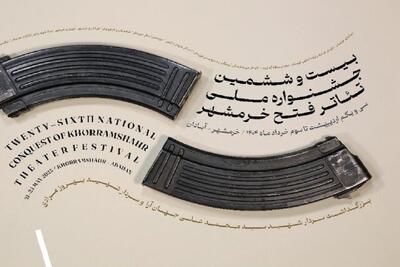 بیست و ششمین
جشنواره ملی
تئاتر فتح خرمشهر
سی و یکم اردیبهشت تا سوم خرداد ماه ۱۴۰۴ / خرمشهر . آبادان
TWENTY-SIXTH NATIONAL
CONQUEST OF KHORRAMSHAHR
THEATER FESTIVAL
21-24 MAY 2025 / KHORRAMSHAHR . ABADAN
بزرگداشت سردار شهید سید محمد علی جهان آرا و سردار شهید بهروز مرادی